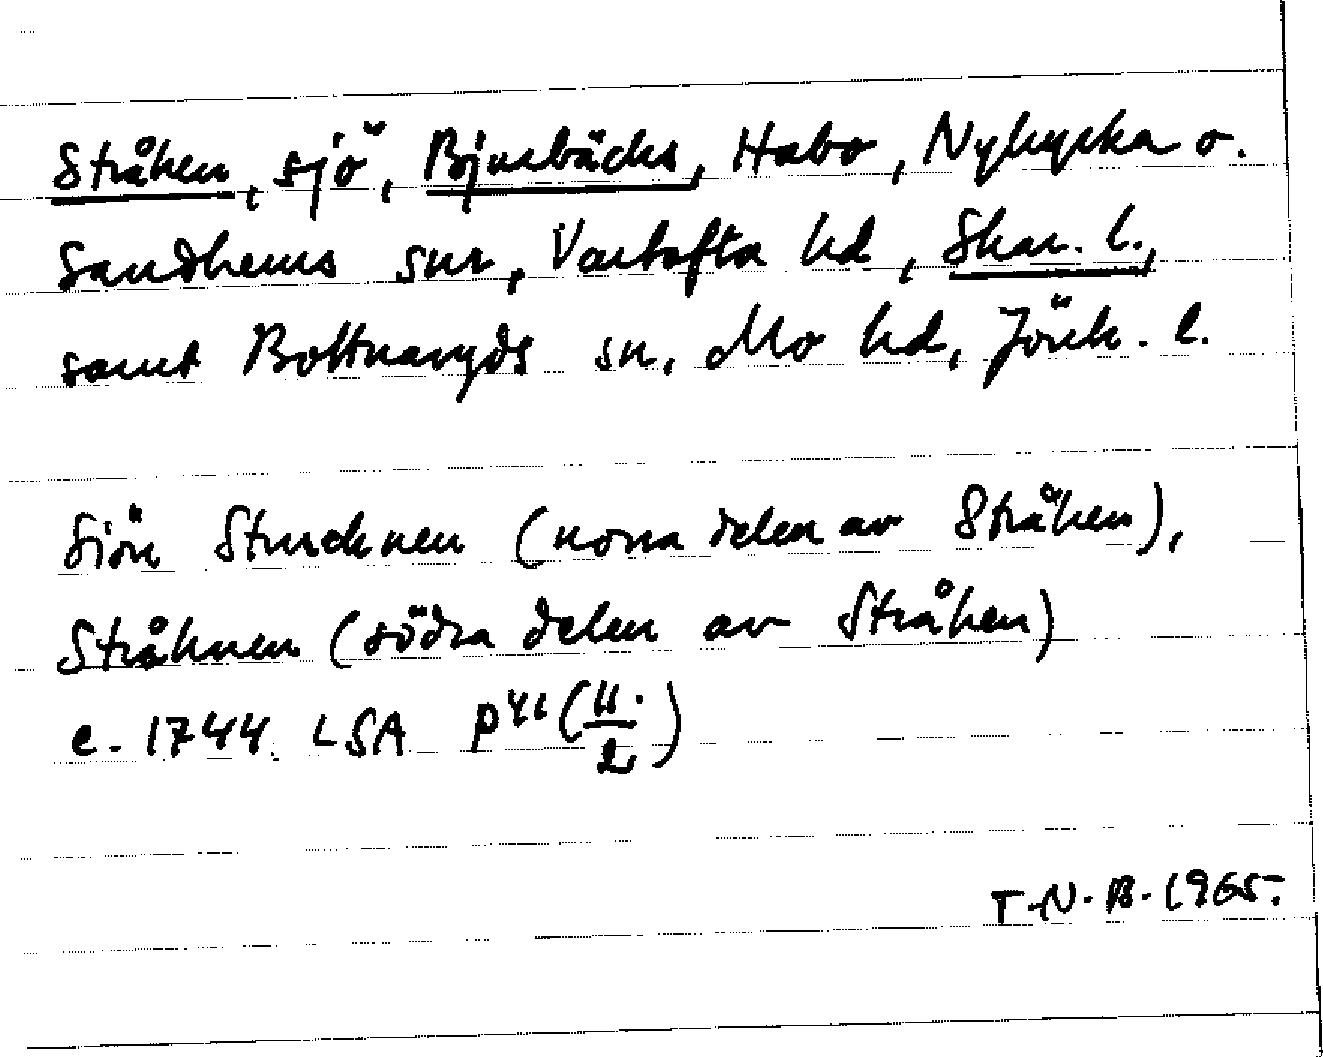 Stråken, sjö, Bjurbäcks, Habo, Nykyrka o.
Sandhems snr, Vartofta hd, Skar. l.,
samt Bottnaryds sn, Mo hd, Jönk. l.
Siön Strucknen (norra delen av Stråken),
Stråknen (södra delen av Stråken)
c. 1744. LSA P
T.N.B. 1965.